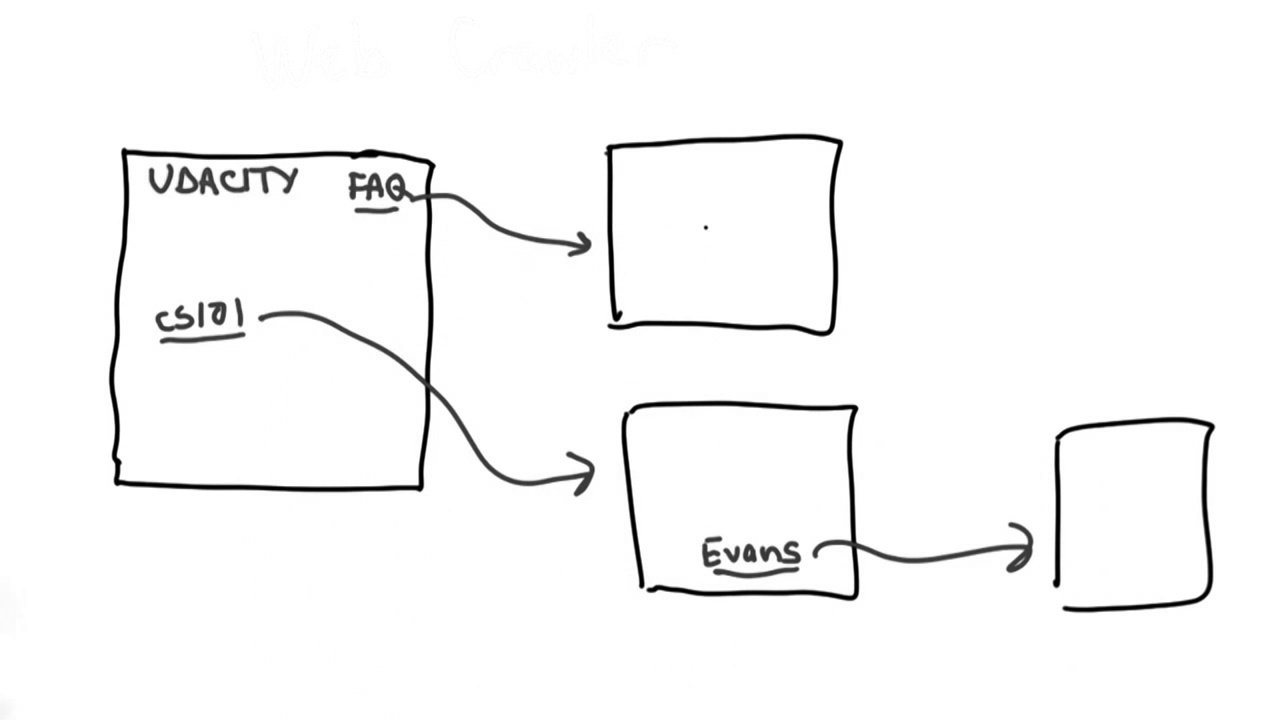 Web Crawler
UDACITY FAQ
cs101
Evans